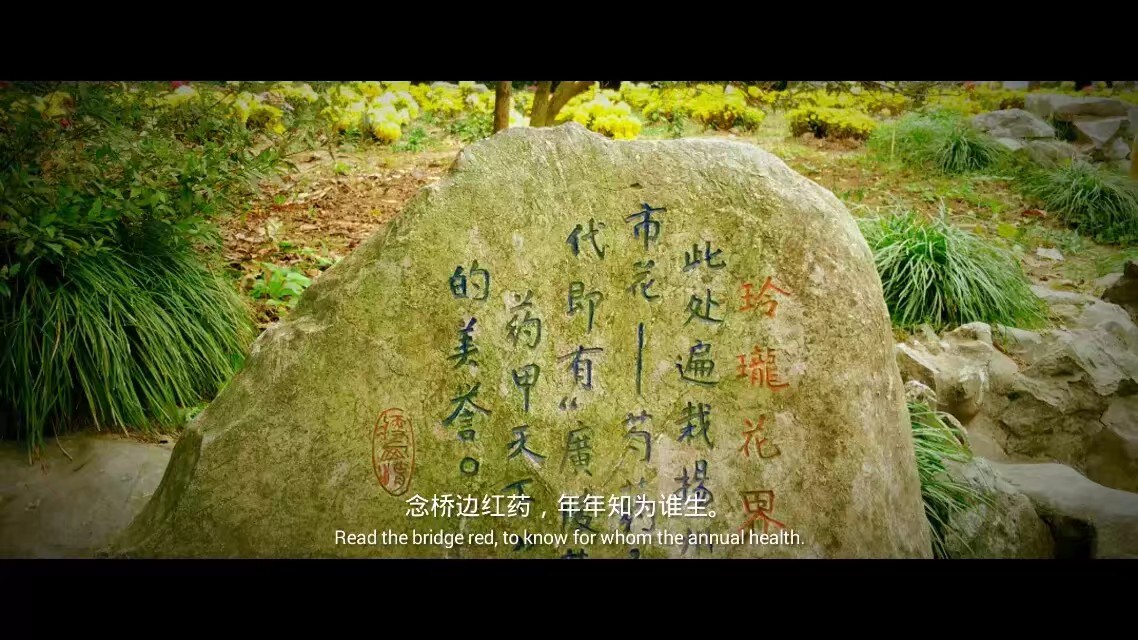 玲瓏花界
此处遍栽揚州
市花—芍药
代即有“廣陵
药甲天下
的美誉。
念桥边红药，年年知为谁生。
Read the bridge red, to know for whom the annual health.